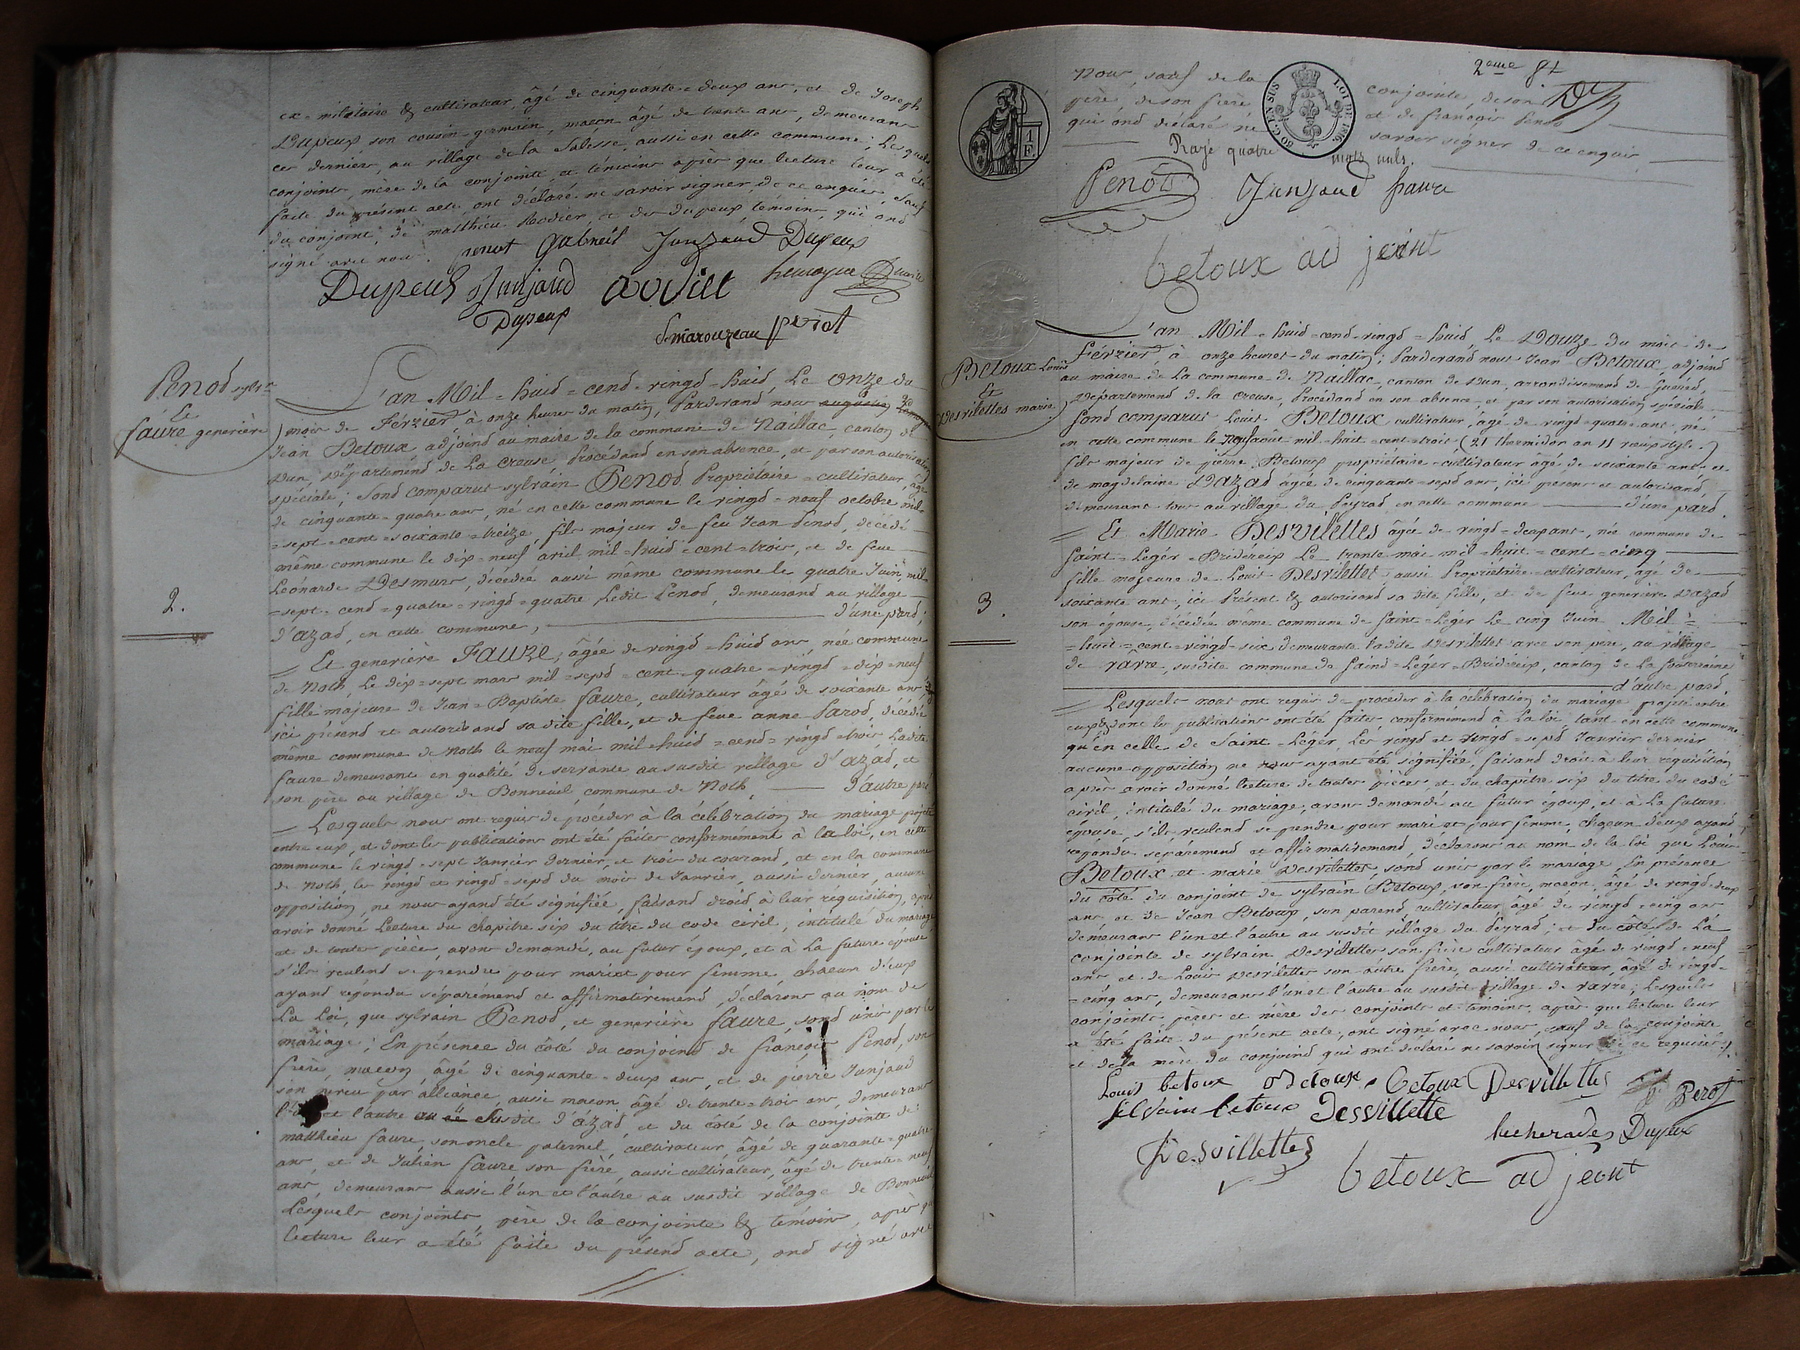 ex-militaire & cultivateur, âgé de cinquante-deux ans, et de Joseph
Dupeux son cousin-germain, maçon âgé de trente ans, demeurant
ces derniers, au village de la Salesse, aussi en cette commune; Lesquels
conjoints, mère de la conjointe, et témoins après que lecture leur a été
faite du présent acte ont déclaré ne savoir signer, de ce enquis, sauf
du conjoint, de matthieu, et des dupeux, témoins, qui ond
signé avec nous.
penot gabriel Junjaud Dupeux
Dupeux Junjaud
Dupeux
Smarouzeau periot
Penod sylv.in
Et
faure genevière
2.
L'an Mil-huid-cend-vingd-huid, Le onze du
mois de Février, à onze heures du matin, Pardevand nous
Jean Betoux adjoind au maire de la commune de Naillac, canton de
Dun, département de La Creuse Procédand en son absence, et par son autorisation
spéciale; sond comparus sylvain Penod Propriétaire-cultivateur âgé
de cinquante-quatre ans, né en cette commune le vingd-neuf octobre mil-
-sept-cent-soixante-treize, fils majeur de feu Jean Penod, décédé
même commune le dix-neuf avril mil-huid-cent-trois, et de feue
Léonarde Desmurs, décédée aussi même commune le quatre Juin mil-
-sept-cend-quatre-vingd-quatre Ledit Penod, demeurand au village
d'azad, en cette commune, d'une pard;
Et genevière FAURE, âgée de vingd-huid ans, née commune
de Noth, Le dix-sept mars mil-sepd-cent-quatre-vingd-dix-neuf
fille majeure de Jean-Baptiste faure, cultivateur âgé de soixante ans,
ici présend et autorisand sa dite fille, et de feue anne Parod, décédée
même commune de Noth le neuf mai mil-huid-cend-vingd-trois Ladite
faure demeurant en qualité de servante au susdit village d'azad, et
son père au village de Bonneuil, commune de Noth, d'autre pard
Lesquels nous ont requis de procéder à la célébration du mariage projeté
entre eux, et dont les publications ont été faites conformément à la loi, en cette
commune le vingd-sept Janvier dernier, et trois du courand, et en la commune
de Noth, les vingd et vingd-sepd du mois de Janvier, aussi dernier, aucune
opposition, ne nous ayand été signifiée, faisand droid à leur réquisition, après
avoir donné Lecture du chapitre six du titre du code civil, intitulé du mariage
et de toutes pièces, avons demandé, au futur époux, et à La future épouse
s'ils veulend se prendre pour mari et pour femme, chacun d'eux
ayand répondu séparémend et affirmativemend, déclarons au nom de
La Loi, que sylvain Penod, et genevière faure, sond unis par le
mariage; En présence du côté du conjoind de françois Penod, son
frère, maçon, âgé de cinquante-deux ans, et de pierre Junjaud
son neveu par alliance, aussi maçon âgé de trente-trois ans, demeurans
l'un et l'autre au susdit d'azad, et du côté de la conjointe de
matthieu faure, son oncle paternel, cultivateur, âgé de quarante-quatre
ans, et de Julien faure son frère, aussi cultivateur, âgé de trente-neuf
ans, demeurans aussi l'un et l'autre au susdit village de Bonneuil
Lesquels conjoints, père de la conjointe & témoins, après que
lecture leur a été faite du présend acte, ond signé avec
2eme 81
Nous, sauf de la conjointe, de son
père, de son frère et de françois Penod
qui ond déclaré ne savoir signer de ce enquis
Rayé quatre mots nuls.
80 C. EN SUS LOI DE 1816.
1 F.
Penot Junjaud faure
betoux ad jeoint
Betoux Louis
Et
Desvilettes marie
3.
L'an Mil-huid-cend-vingd-huid, Le Douze du mois de
Février à onze heures du matin; Pardevand nous Jean Betoux adjoind
au maire de La commune de Naillac, canton de Dun, arrondissement de Guéred,
département de la creuse, Procédand en son absence, et par son autorisation spéciale
sond comparus Louis Betoux cultivateur, âgé de vingd-quatre ans, né
en cette commune le neuf août mil-huit-cent-trois (21 thermidor an 11 
fils majeur de pierre Betoux propriétaire-cultivateur âgé de soixante ans, et
de magdelaine Dazad âgée de cinquante-sepd ans, ici présens et autorisand,
demeurans tous au village du Peyrad, en cette commune d'une pard.
Et Marie Desvilettes âgée de vingd-deux ans, née commune de
Saint-Léger-Bridereix Le trente mai mil-huit-cent-cinq
fille majeure de Louis Desvilettes aussi Propriétaire-cultivateur, âgé de
soixante ans, ici présent & autorisand sa dite fille, et de feue genevière Dazad
son épouse, décédée même commune de saint-Léger Le cinq Juin Mil-
-huit-cent-vingd-six demeurante ladite Desvilettes avec son père, au village
de varre, susdite commune de Saind-Léger-Bridereix, canton de La souterraine
d'autre pard.
Lesquels nous ont requis de procéder à la célébration du mariage projeté entre
eux & dont les publications ont été faites conformémend à La loi, tant en cette commune
qu'en celle de Saint-Léger, Les vingd et vingd-sepd Janvier dernier
aucune opposition ne nous ayant été signifiée, faisand droit à leur réquisition,
après avoir donné lecture de toutes pièces, et du chapitre six du titre du code
civil, intitulé du mariage, avons demandé au futur époux, et à La future
épouse, s'ils veulend se prendre pour mari et pour femme, chacun d'eux ayand
répondu séparément et affirmativemend, déclarons au nom de la loi que Louis
Betoux et marie Desvilettes, sond unis par le mariage En présence
du côté du conjoint de sylvain Betoux, son frère, maçon, âgé de vingd-deux
ans et de Jean Betoux, son parend cultivateur âgé de vingd-cinq ans
demeurans l'un et l'autre au susdit village du Peyrad; et du côté de La
conjointe de sylvain Desvilettes son frère cultivateur âgé de vingd-neuf
ans et de Louis Desvilettes son autre frère, aussi cultivateur, âgé de vingd-
-cinq ans, demeurans l'un et l'autre au susdit village de varre; Lesquels
conjoints, pères et mère des conjoints et témoins, après que lecture leur
a été faite du présent acte, ont signé avec nous, sauf de la conjointe
et de la mère du conjoind qui ont déclaré ne savoir signer de ce requises.
Louis betoux Betoux Betoux Desvillettes
silvain betoux Desvillette P. Perot
lucherades Dupeux
Desvillettes
betoux ad jeoint